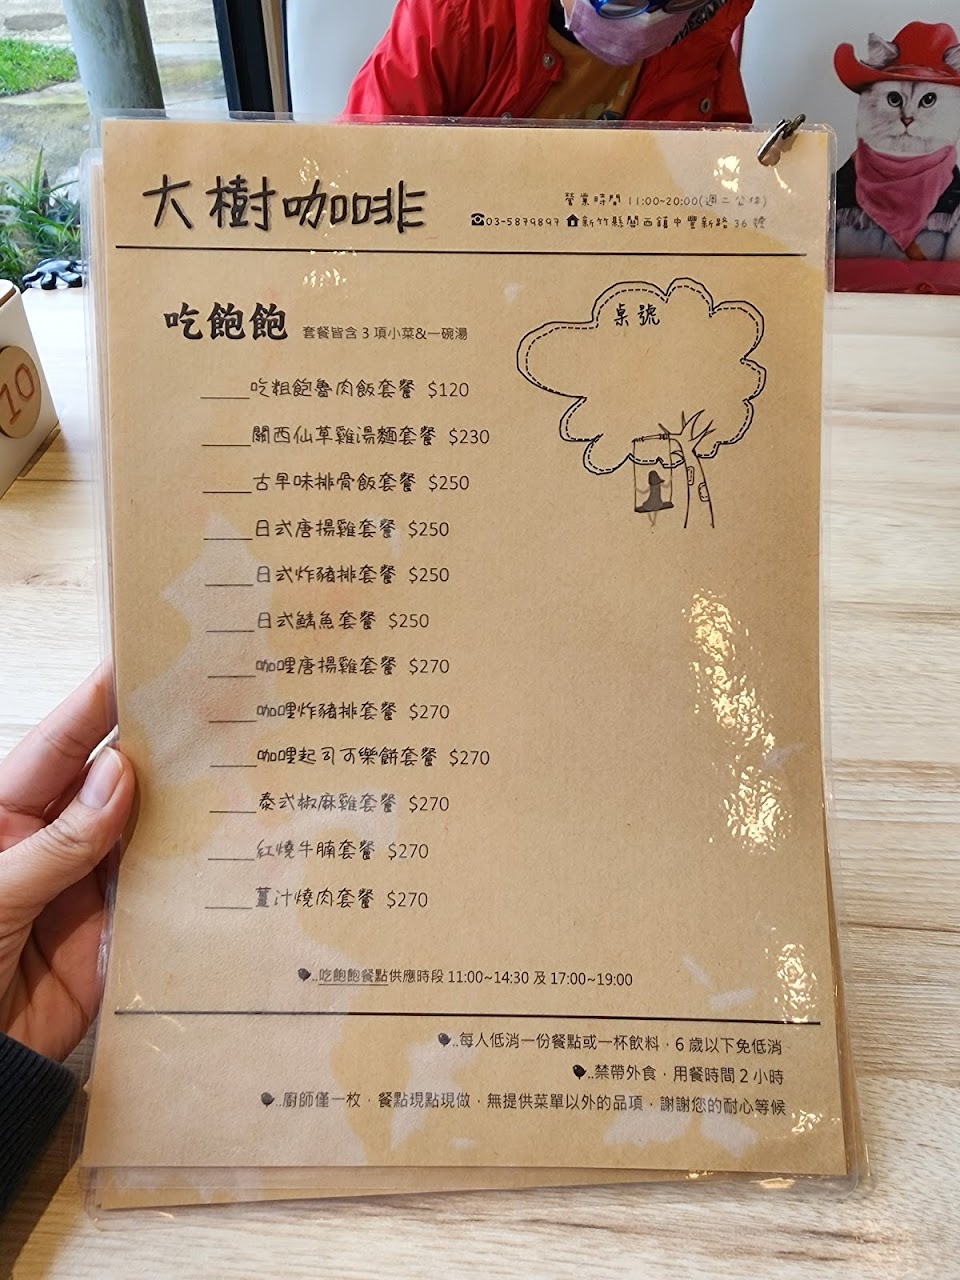 大樹咖啡
營業時間 11:00~20:00(週二公休)
03-5879897 新竹縣關西鎮中豐新路 36 號
吃飽飽 套餐皆含 3 項小菜&一碗湯
桌號
____吃粗飽魯肉飯套餐 $120
____關西仙草雞湯麵套餐 $230
____古早味排骨飯套餐 $250
____日式唐揚雞套餐 $250
____日式炸豬排套餐 $250
____日式鯖魚套餐 $250
____咖哩唐揚雞套餐 $270
____咖哩炸豬排套餐 $270
____咖哩起司可樂餅套餐 $270
____泰式椒麻雞套餐 $270
____紅燒牛腩套餐 $270
____薑汁燒肉套餐 $270
..吃飽飽餐點供應時段 11:00~14:30 及 17:00~19:00
..每人低消一份餐點或一杯飲料，6 歲以下免低消
..禁帶外食，用餐時間 2 小時
..廚師僅一枚，餐點現點現做，無提供菜單以外的品項，謝謝您的耐心等候
10